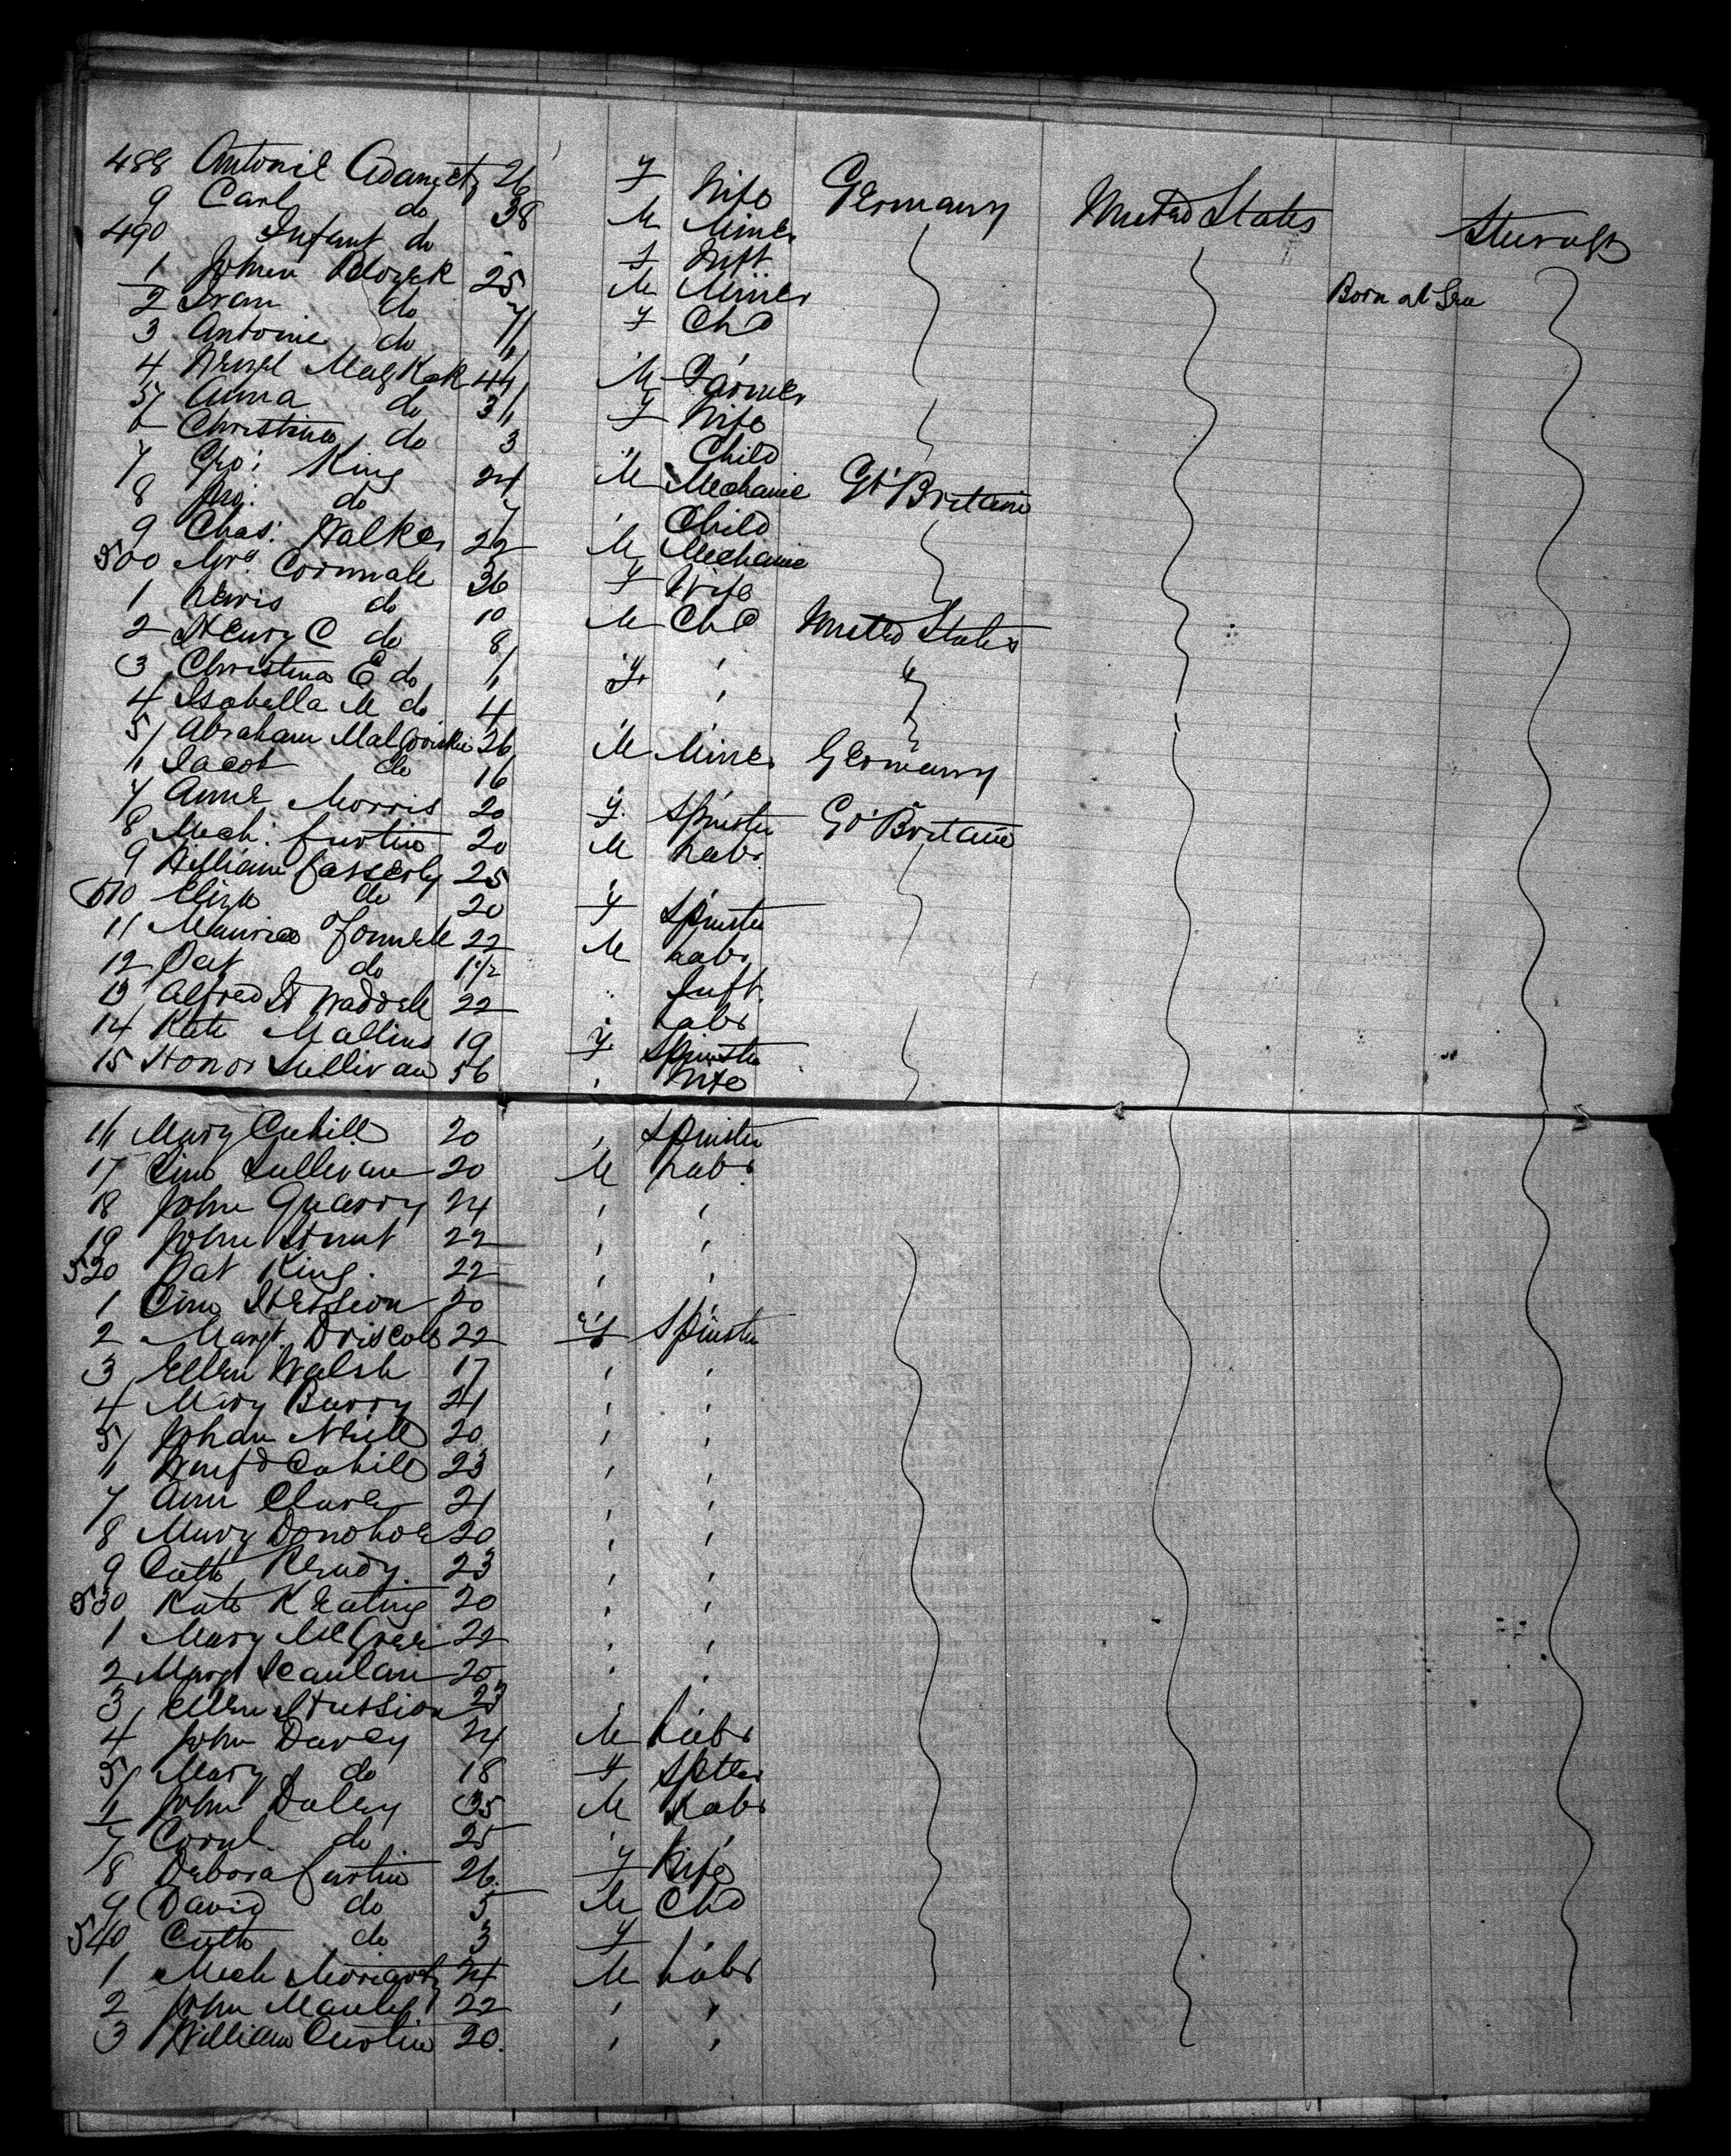 488 Antonie 26 F Wife Germany United States Steerage
9 Carl do 38 M Miner
490 Infant do - F Inft
1 25 M Miner Born at Sea
2 do 7 F Chd
3 Antonie do
4 44 M Farmer
5 Anna do F Wife
6 Christina do 3 " Child
7 Geo: King 24 M Mechanic Gt Britain
8 do 7 " Child
9 Chas: Walker 22 M Mechanic
500 Mrs. 36 F Wife
1 Lewis do 10 M Chd United States
2 Henry C do 8 " "
3 Christina E do 6 F "
4 Isabella M do 4 " "
5 Abraham 26 M Miner Germany
6 Jacob do 16 " "
7 Anne Morris 20 F. Spinster Gt Britain
8 Mich: Curtin 20 M Labr.
9 William Casserly 25 " "
510 Eliza do 20 F Spinster
11 Maurice 22 M Labr.
12 Pat do 1½ " Inft.
13 Alfred Waddell 22 " Labr
14 Kate Mallins 19 F. Spinster
15 Honor Sullivan 56 " Wife
16 Mary Cahill 20 " Spinster
17 Sullivan 20 M Labr.
18 John Quarry 24 " "
19 John 22 " "
520 Pat King. 22 " "
1 20 " "
2 Margt. Driscoll 22 F Spinster
3 Ellen Walsh 17 " "
4 Mary Barry 21 " "
5 Johan Neill 20 " "
6 Winfd Cahill 23 " "
7 Ann 21 " "
8 Mary Donohoe 20 " "
9 Cath 23 " "
530 Kate Keating 20 " "
1 Mary 22 " "
2 Margt Scanlan 25 " "
3 Ellen 23 " "
4 John Davey 24 M Labr
5 Mary do 18 F Spster
6 John Daley 35 M Labr
7 do 25 " "
8 Debora Curtin 26. F Wife
9 David do 5 M Chd
540 Cath do 3 F "
1 Mich Moriarty 24 M Labr
2 John 22 " "
3 William Curtin 20. " "